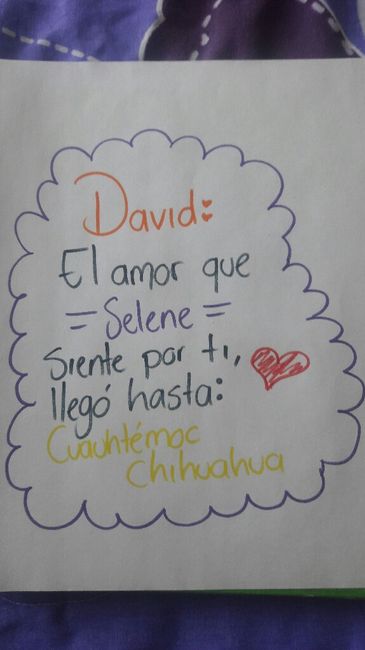 David:
El amor que
= Selene =
siente por ti,
llegó hasta:
Cuauhtémoc
Chihuahua